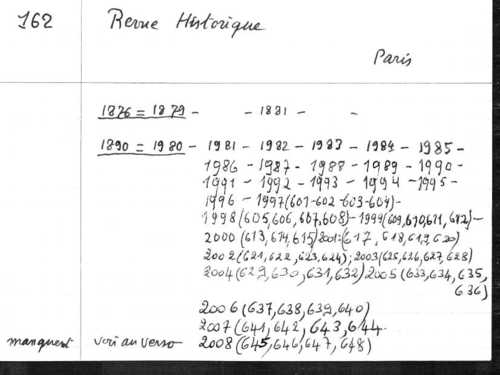 162 Revue Historique
Paris
1876 = 1879 - - 1881 - -
1890 = 1980 - 1981 - 1982 - 1983 - 1984 - 1985 -
1986 - 1987 - 1988 - 1989 - 1990 -
1991 - 1992 - 1993 - 1994 - 1995 -
1996 - 1997 (601-602-603-604) -
1998 (605,606,607,608) - 1999 (609,610,611,612) -
2000 (613,614,615) 2001: (617, 618,619,620)
2002 (621,622,623,624); 2003 (625,626,627,628)
2004 (629,630,631,632) 2005 (633,634,635,
636)
2006 (637,638,639,640)
2007 (641,642,643,644
manquent voir au verso 2008 (645,646,647,648)